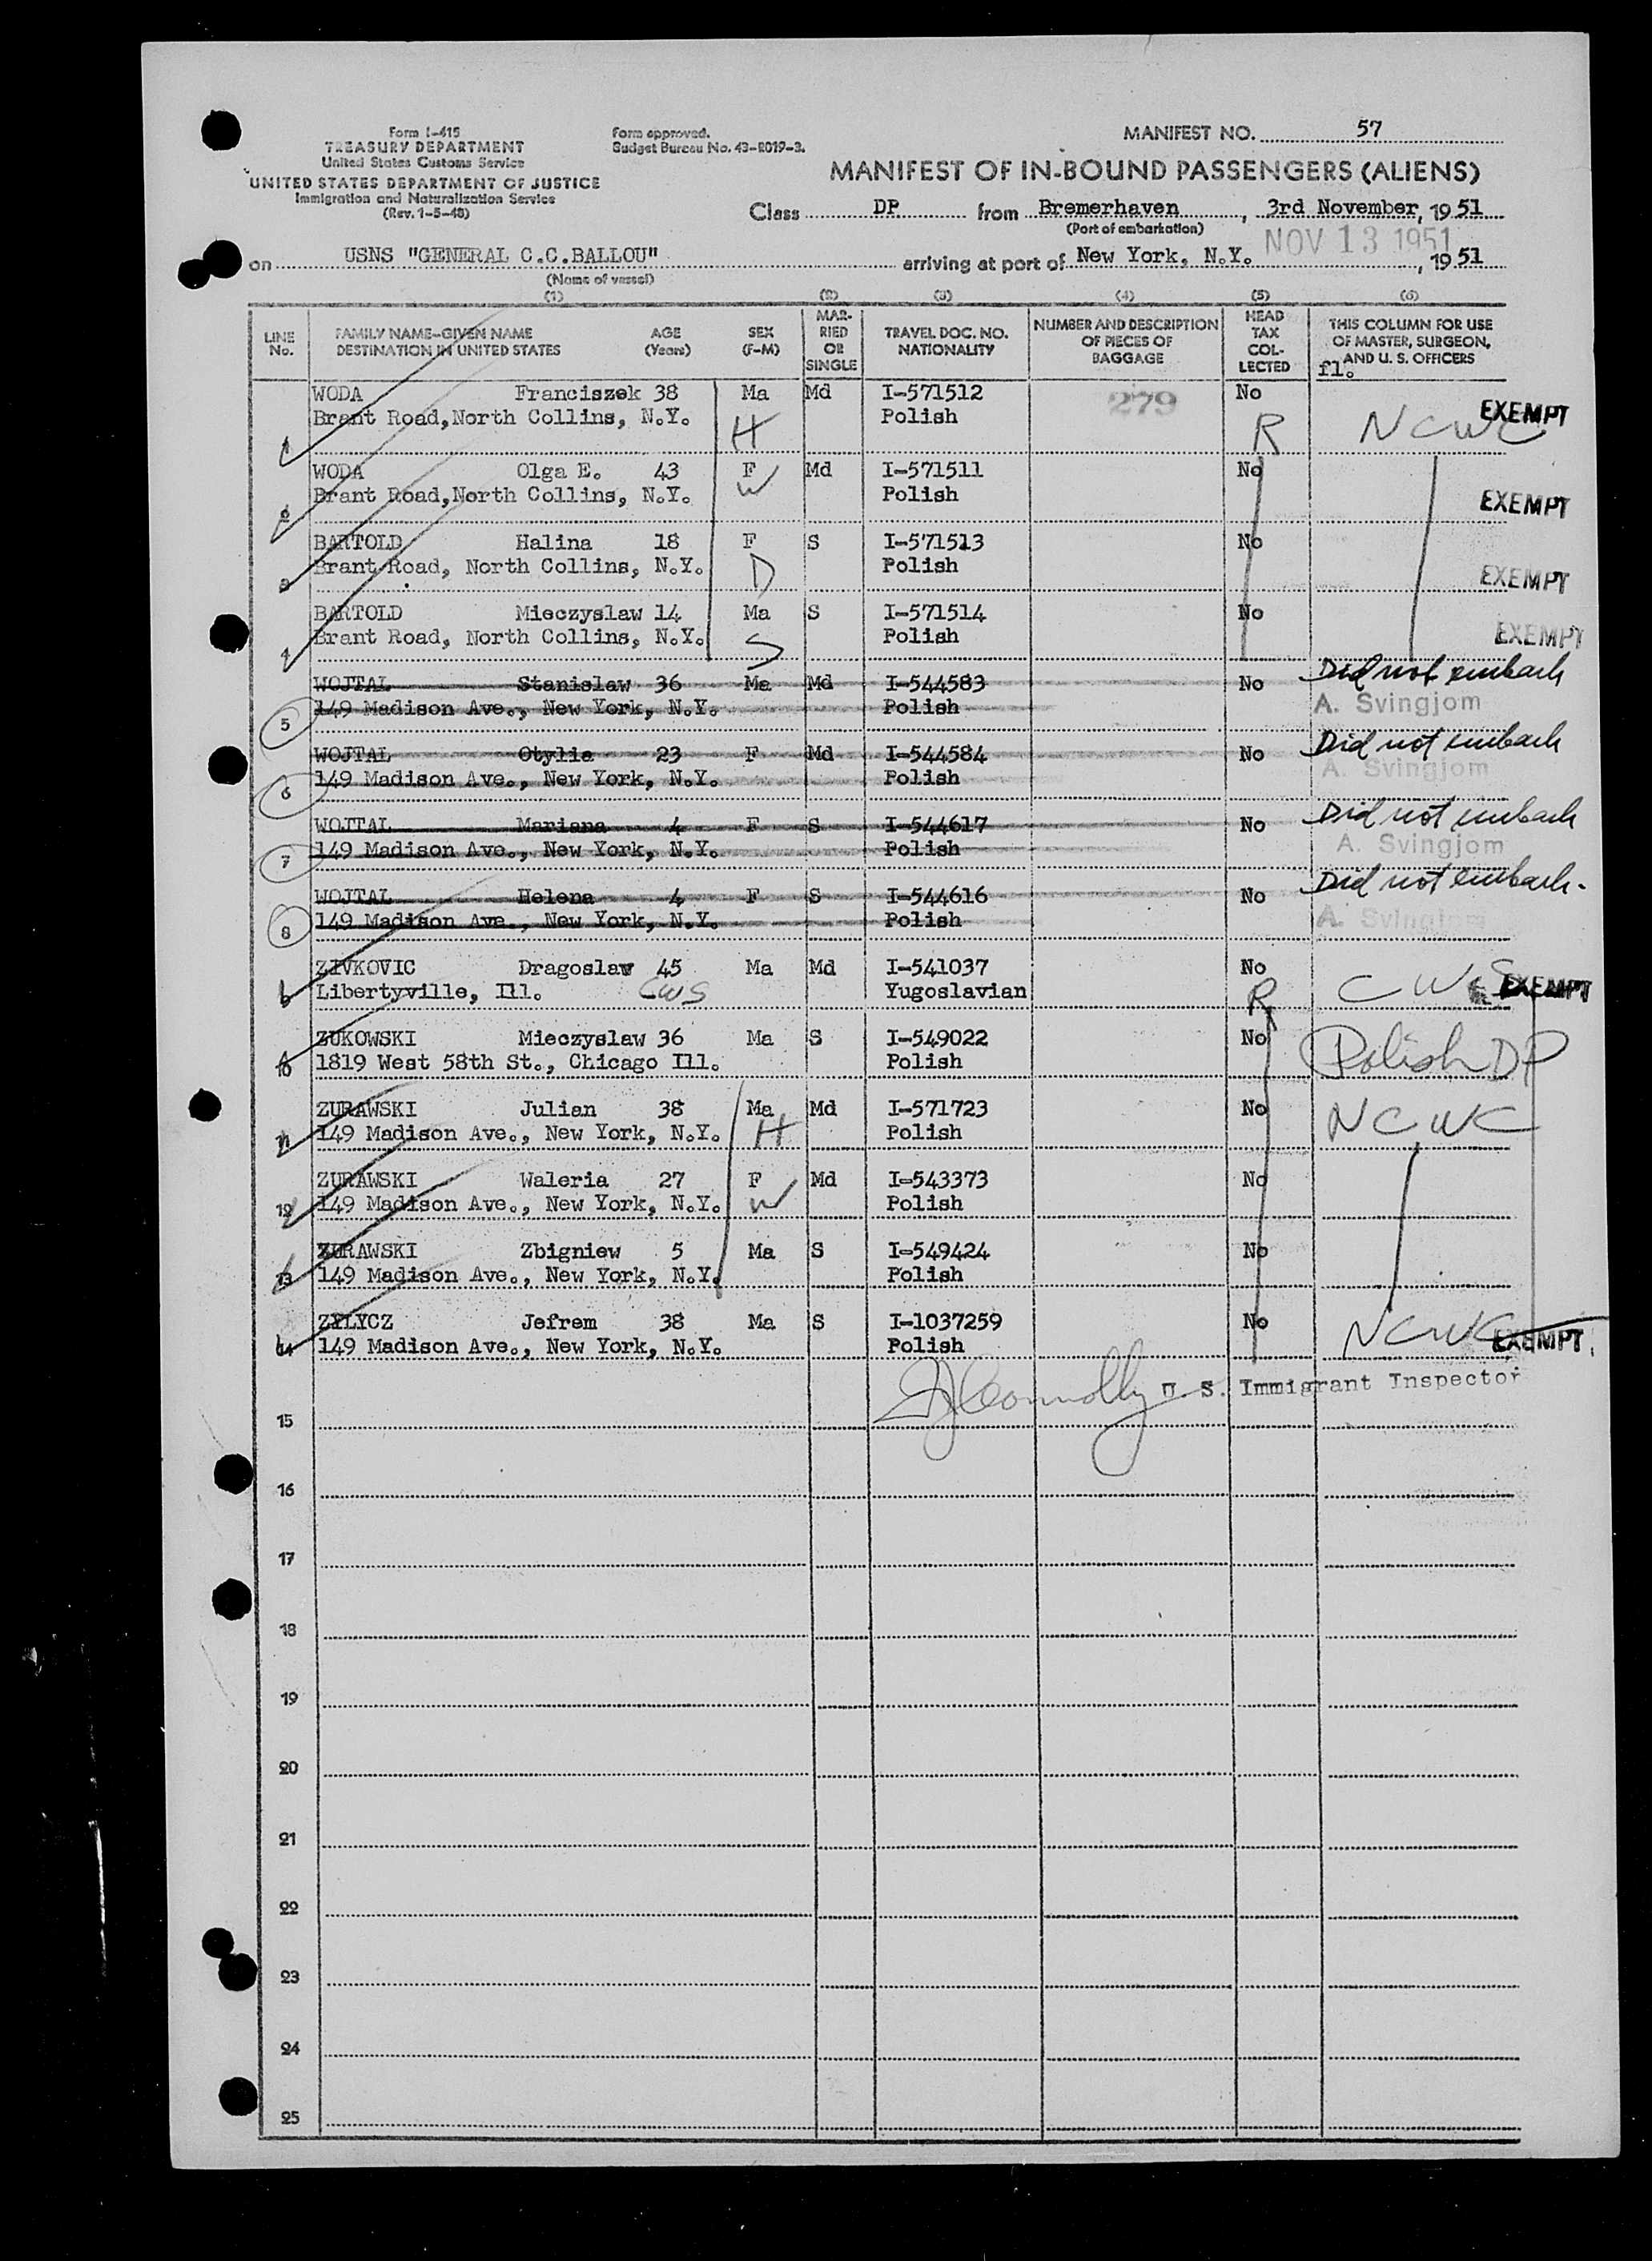 Form I-415
TREASURY DEPARTMENT
United States Customs Service
UNITED STATES DEPARTMENT OF JUSTICE
Immigration and Naturalization Service
(Rev. 1-5-48)
Form approved.
Budget Bureau No. 43-R019-3.
MANIFEST NO. 57
MANIFEST OF IN-BOUND PASSENGERS (ALIENS)
Class DP from Bremerhaven, 3rd November, 1951
(Port of embarkation)
NOV 13 1951
on USNS "GENERAL C.C.BALLOU" arriving at port of New York, N.Y., 1951
(Name of vessel)
(1) (2) (3) (4) (5) (6)
LINE No. FAMILY NAME-GIVEN NAME DESTINATION IN UNITED STATES AGE (Years) SEX (F-M) MARRIED OR SINGLE TRAVEL DOC. NO. NATIONALITY NUMBER AND DESCRIPTION OF PIECES OF BAGGAGE HEAD TAX COLLECTED THIS COLUMN FOR USE OF MASTER, SURGEON, AND U. S. OFFICERS
fl.
WODA Franciszek 38 Ma Md I-571512 279 No EXEMPT
1 Brant Road,North Collins, N.Y. H Polish R NCWC
WODA Olga E. 43 F Md I-571511 No
2 Brant Road,North Collins, N.Y. W Polish EXEMPT
BARTOLD Halina 18 F S I-571513 No
3 Brant Road, North Collins, N.Y. D Polish EXEMPT
BARTOLD Mieczyslaw 14 Ma S I-571514 No
4 Brant Road, North Collins, N.Y. S Polish EXEMPT
WOJTAL Stanislaw 36 Ma Md I-544583 No Did not embark
5 149 Madison Ave., New York, N.Y. Polish A. Svingjom
WOJTAL Otylia 23 F Md I-544584 No Did not embark
6 149 Madison Ave., New York, N.Y. Polish A. Svingjom
WOJTAL Mariana 4 F S I-544617 No Did not embark
7 149 Madison Ave., New York, N.Y. Polish A. Svingjom
WOJTAL Helena 4 F S I-544616 No Did not embark.
8 149 Madison Ave., New York, N.Y. Polish A. Svingjom
ZIVKOVIC Dragoslav 45 Ma Md I-541037 No
9 Libertyville, Ill. CWS Yugoslavian R CWS EXEMPT
ZUKOWSKI Mieczyslaw 36 Ma S I-549022 No Polish DP
10 1819 West 58th St., Chicago Ill. Polish
ZURAWSKI Julian 38 Ma Md I-571723 No NCWC
11 149 Madison Ave., New York, N.Y. H Polish
ZURAWSKI Waleria 27 F Md I-543373 No
12 149 Madison Ave., New York, N.Y. W Polish
ZURAWSKI Zbigniew 5 Ma S I-549424 No
13 149 Madison Ave., New York, N.Y. Polish
ZYLYCZ Jefrem 38 Ma S I-1037259 No NCWC
14 149 Madison Ave., New York, N.Y. Polish EXEMPT
Connolly U S. Immigrant Inspector
15
16
17
18
19
20
21
22
23
24
25